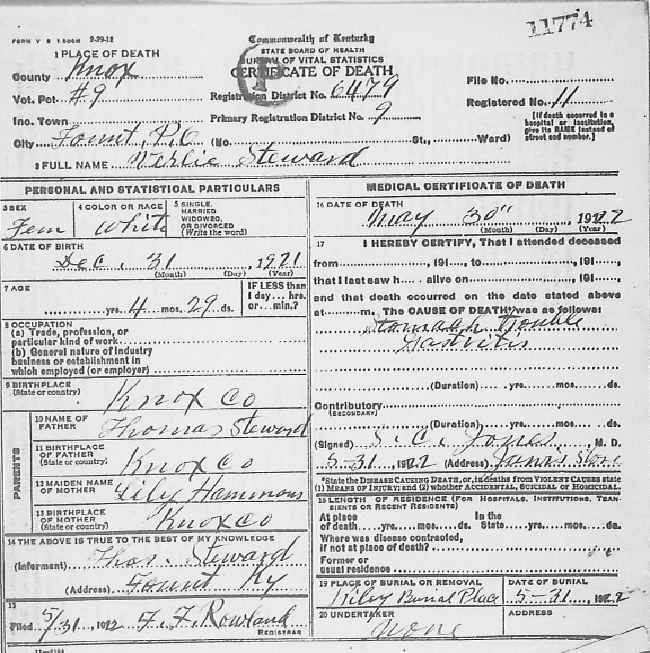 11774
FORM V S 1-500M 2-29-12
Commonwealth of Kentucky
STATE BOARD OF HEALTH
BUREAU OF VITAL STATISTICS
CERTIFICATE OF DEATH
1 PLACE OF DEATH
County Knox
Vot. Pct #9
Inc. Town
City Fount, P.O. (No. St., Ward)
Registration District No. 6479
Primary Registration District No. 9
File No.
Registered No. 11
[If death occurred in a hospital or institution, give its NAME instead of street and number.]
2 FULL NAME Verlie Steward
PERSONAL AND STATISTICAL PARTICULARS
3 SEX Fem
4 COLOR OR RACE White
5 SINGLE, MARRIED WIDOWED, OR DIVORCED (Write the word)
6 DATE OF BIRTH
Dec. 31 1921
(Month) (Day) (Year)
7 AGE
yrs. 4 mos. 29 ds.
IF LESS than I day... hrs. or... min.?
8 OCCUPATION
(a) Trade, profession, or
particular kind of work
(b) General nature of industry
business or establishment in
which employed (or employer)
9 BIRTHPLACE
(State or country) Knox Co
PARENTS
10 NAME OF FATHER Thomas Steward
11 BIRTHPLACE OF FATHER (State or country) Knox Co
12 MAIDEN NAME OF MOTHER Lily Hammons
13 BIRTHPLACE OF MOTHER (State or country) Knox Co
14 THE ABOVE IS TRUE TO THE BEST OF MY KNOWLEDGE
(Informent) Thos. Steward
(Address) Fount Ky
15
Filed 5/31, 1922 F. F. Rowland
REGISTRAR
11-3184
MEDICAL CERTIFICATE OF DEATH
16 DATE OF DEATH
May 30" , 1922
(Month) (Day) (Year)
17 I HEREBY CERTIFY, That I attended deceased
from , 191 , to , 191 ,
that I last saw h alive on , 191 ,
and that death occurred on the date stated above
at m. The CAUSE OF DEATH* was as follows:
Stomach trouble
Gastritis
(Duration) yrs. mos. ds.
Contributory
(SECONDARY)
(Duration) yrs. mos. ds.
(Signed) S. C. Jones, M. D.
5-31 1922 (Address) Store
*State the DISEASE CAUSING DEATH, or, in deaths from VIOLENT CAUSES state
(1) MEANS OF INJURY; and (2) whether ACCIDENTAL, SUICIDAL or HOMICIDAL.
18 LENGTH OF RESIDENCE (FOR HOSPITALS, INSTITUTIONS, TRANSIENTS OR RECENT RESIDENTS)
At place of death yrs. mos. ds. In the State yrs. mos. ds.
Where was disease contracted,
if not at place of death?
Former or
usual residence
19 PLACE OF BURIAL OR REMOVAL
Wiley Burial Place
DATE OF BURIAL
5-31, 1922
20 UNDERTAKER
none
ADDRESS